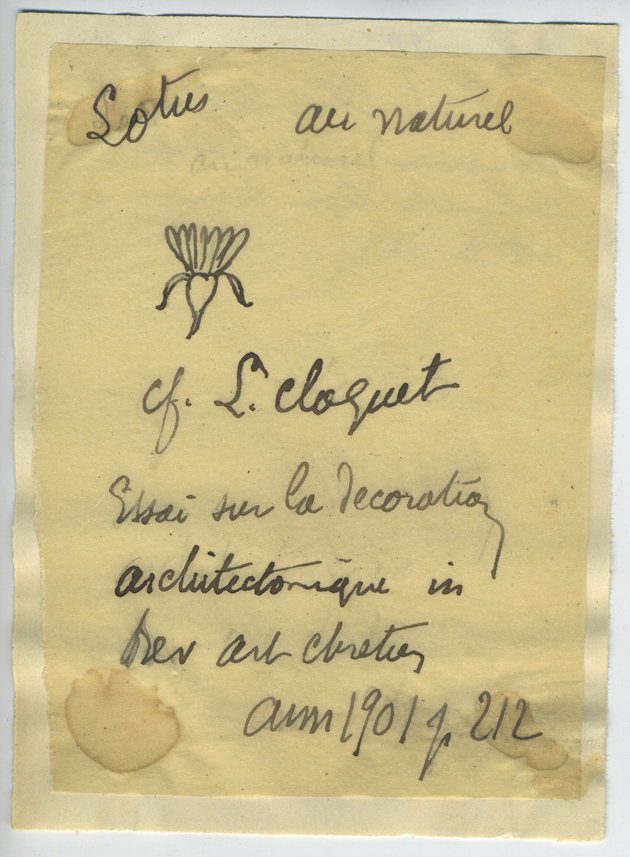 Lotus au naturel
au naturel
cf. L. Cloquet
Essai sur la Decoration
architectonique in
Rev art chretien
ann 1901 p. 212